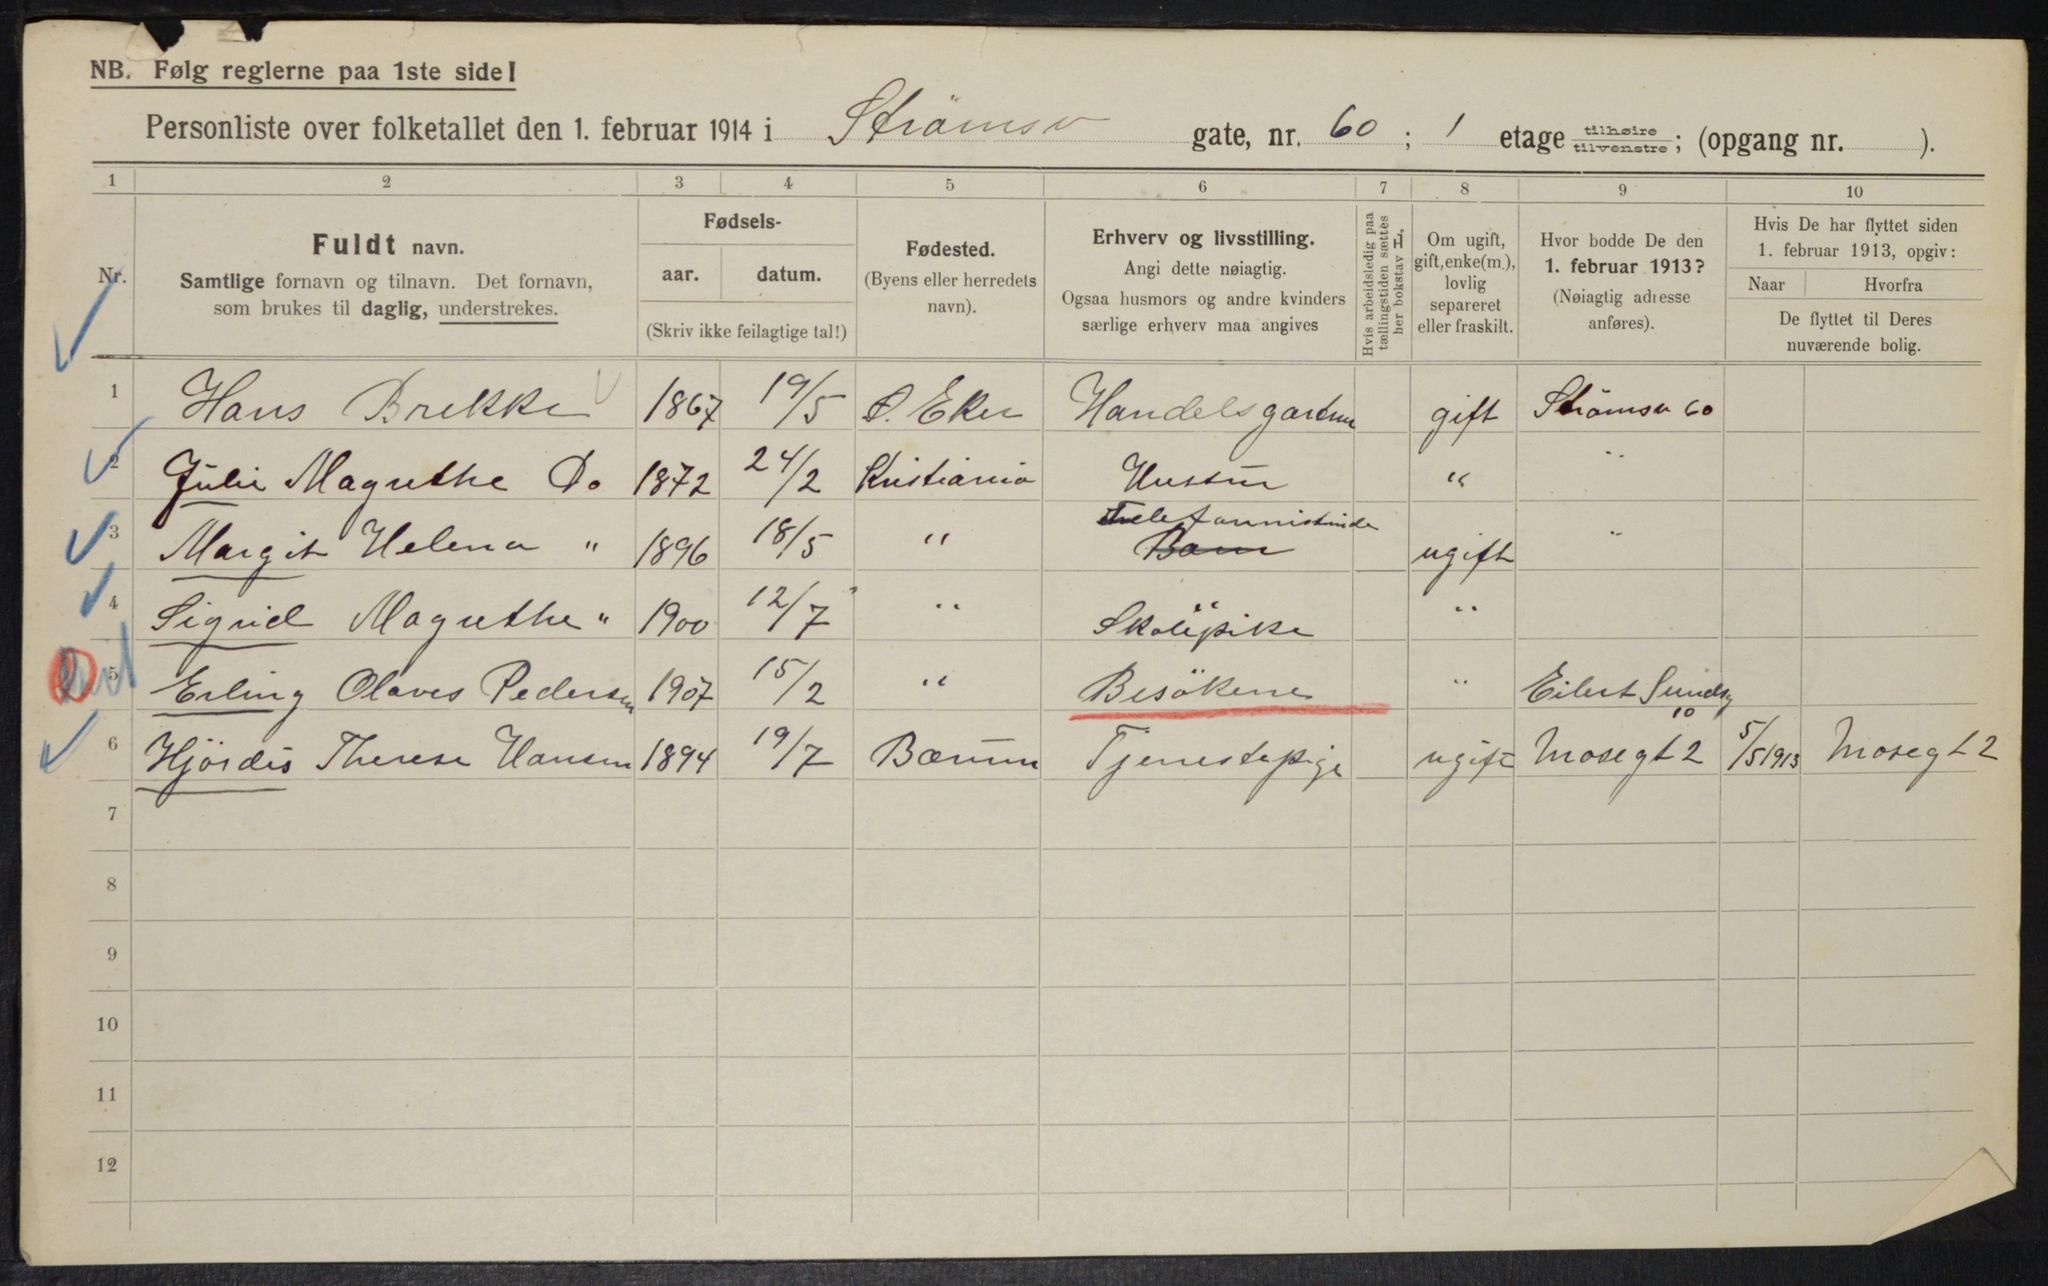 NB. Følg reglerne paa 1ste side!
Personliste over folketallet den 1. februar 1914 i Strömsv gate, nr. 60 ; 1 etage tilhøire tilvenstre ; (opgang nr. ).
1 2 3 4 5 6 7 8 9 10
Nr.
Fuldt navn.
Samtlige fornavn og tilnavn. Det fornavn,
som brukes til daglig, understrekes.
Fødsels-
aar. datum.
(Skriv ikke feilagtige tal!)
Fødested.
(Byens eller herredets
navn).
Erhverv og livsstilling.
Angi dette nøiagtig.
Ogsaa husmors og andre kvinders
særlige erhverv maa angives
Hvis arbeidsledig paa
tællingstiden sættes
her bokstav H.
Om ugift,
gift, enke(m.),
lovlig
separeret
eller fraskilt.
Hvor bodde De den
1. februar 1913?
(Nøiagtig adresse
anføres).
Hvis De har flyttet siden
1. februar 1913, opgiv:
Naar Hvorfra
De flyttet til Deres
nuværende bolig.
1 Hans Brekke 1867 19/5 Ö. Eker Handelsgartner gift Strömsv 60
2 Julie Magrethe Do 1872 24/2 Kristiania Hustru " "
3 Margit Helena " 1896 18/5 " Telefonnistinde Barn ugift "
4 Sigrid Magrethe " 1900 12/7 " Skolepike "
5 Erling Olaves Pedersen 1907 15/2 " Besökene " Eilert Sundsg 10
6 Hjördis Therese Hansen 1894 19/7 Bærum Tjenestepige ugift Mosegt 2 5/5 1913 Mosegt 2
7
8
9
10
11
12